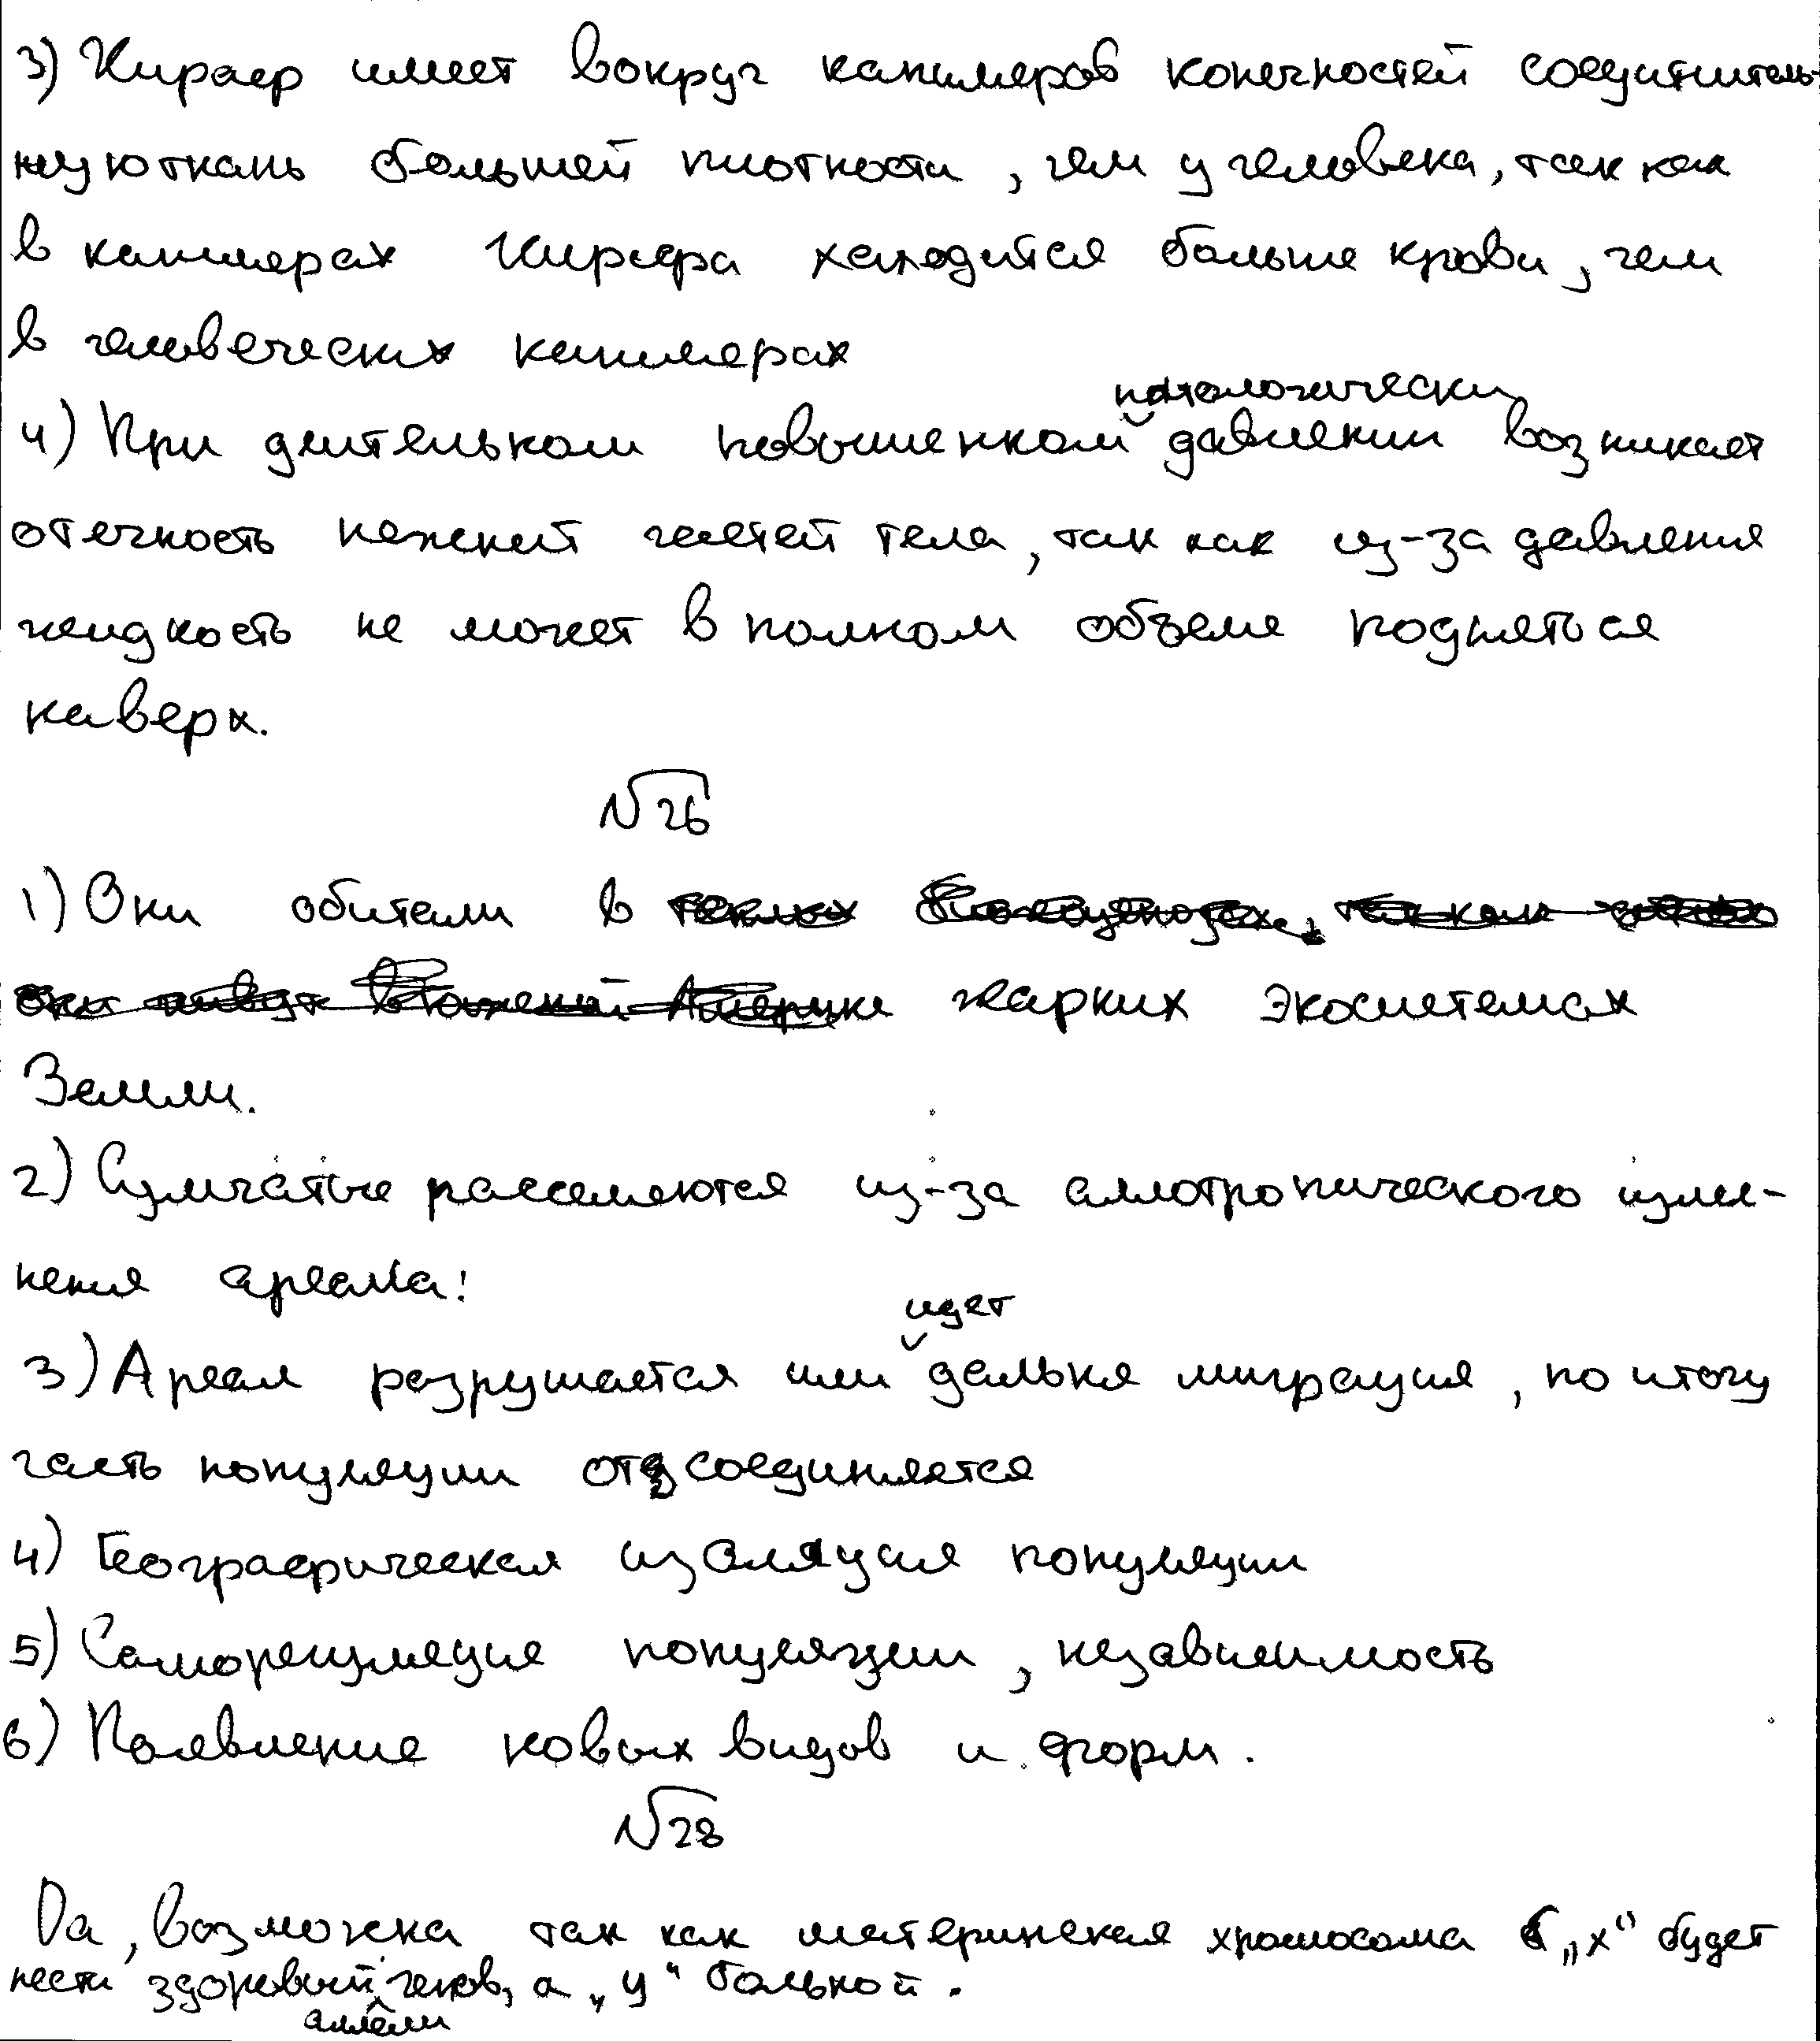 3) Жираф имеет вокруг капилляров конечностей соединитель-
ную ткань большей плотности, чем у человека, так как
в капиллярах Жирафа находится больше крови, чем
в человеческих капиллярах
патологически
4) При длительном повышенном давлении возникает
отечность нижней частей тела, так как из-за давления
жидкость не может в полном объеме подняться
наверх.
№26
1) Они обитали в
жарких экосистемах
Земли.
2) Сумчатые расселяются из-за аллотропического изме-
нения ареала!
идет
3) Ареал разрушается или дальня миграция, по итогу
часть популяции отсоединяется
4) Географическая изоляция популяции
5) Саморегуляция популяции, независимость
6) Появление новых видов и форм.
№28
Да, возможна так как материнская хромосома „х" будет
нести здоровый генов, а „у" больной.
аллели